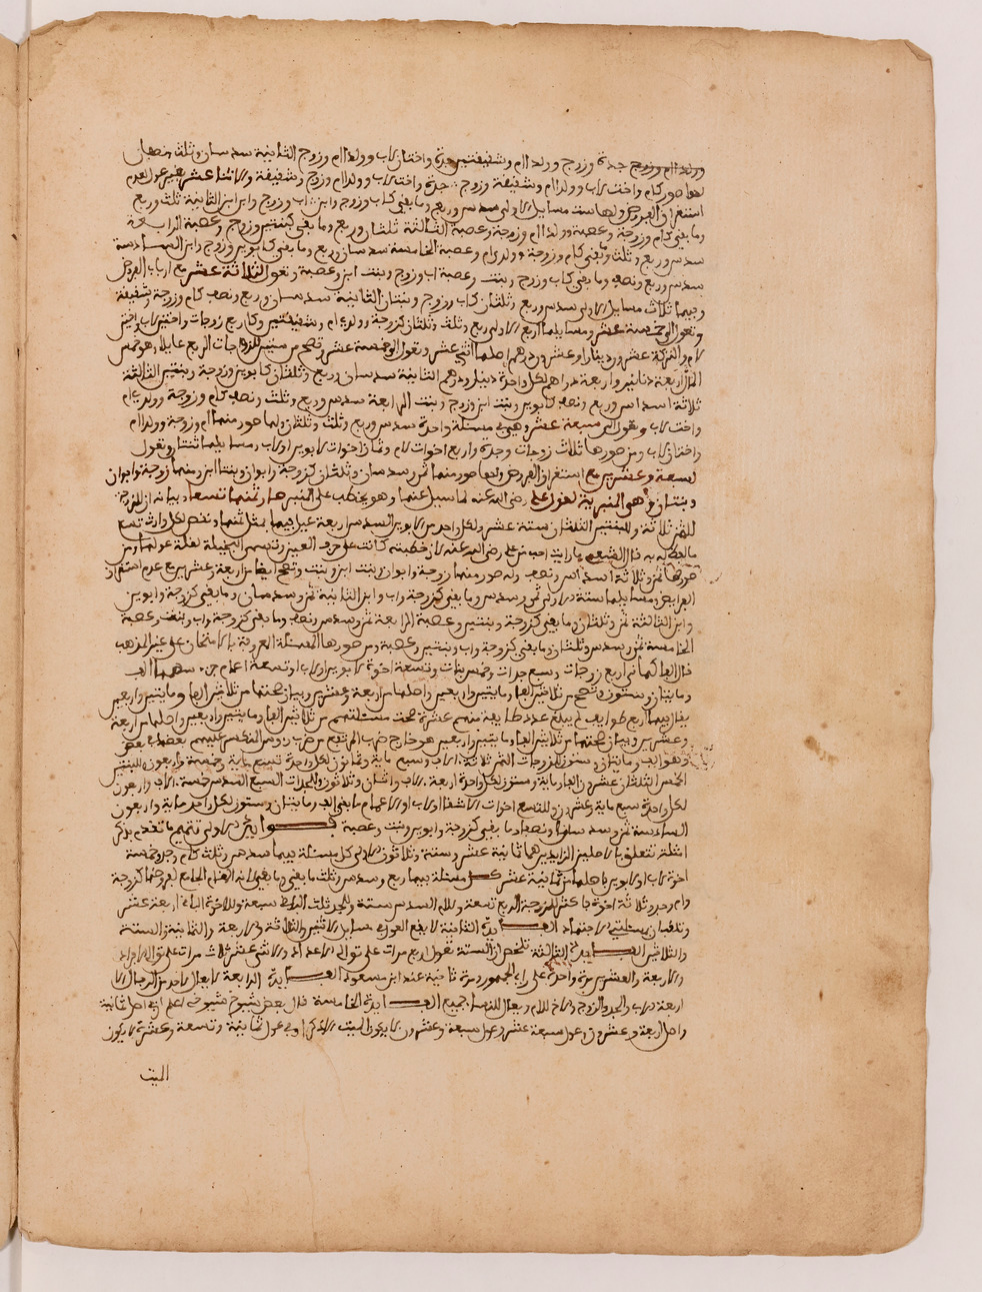 وولدا ام وزوج جدة وزوج وولدا ام وشقيقتين جدة واختان لاب وولدا ام وزوج الثانية سدسان وثلث ونصف
لها صور كام واخت لاب وولدا ام وشقيقة وزوج جدة واخت لاب وولدا ام وزوج وشقيقة والاثنا عشر بغير عول لعدم
استغراق الفروض ولها ست مسايل الاولى سدس وربع وما بقي كاب وزوج وابن اب وزوج وابن ابن الثانية ثلث وربع
وما بقي كام وزوجة وعصبة وولدا ام وزوجة وعصبة الثالثة ثلثان وربع وما بقي كبنتين وزوج وعصبة الرابعة
سدس وربع وثلث وما بقي كام وزوجة وولدي ام وعصبة الخامسة سدسان وربع وما بقي كابوين وزوج وابن السادسة
سدس وربع ونصف وما بقي كاب وزوج وبنت وعصبة اب وزوج وبنت ابن وعصبة وتعول لثلاثة عشر مع ارباب الفروض
وفيها ثلاث مسايل الاولى سدس وربع وثلثان كاب وزوج وبنتان الثانية سدسان وربع ونصف كام وزوجة وشقيقة
وتعول الى خمسة عشر ومسايلها اربع الاولى ربع وثلث وثلثان كزوجة وولدي ام وشقيقتين وكاربع زوجات واختين لاب واختين
لام والتركة عشرون دينارا وعشرون درهما اصلها اثني عشر وتعول الى خمسة عشر وتصح من ستين للزوجات الربع عايلا وهو خمس
المال اربعة دنانير واربعة دراهم لكل واحدة دينار ودرهم الثانية سدسان وربع وثلثان كابوين وزوجة وبنتين الثالثة
ثلاثة اسداس وربع ونصف كابوين وبنت ابن وزوج وبنت الرابعة سدس وربع وثلث ونصف كام وزوجة وولدي ام
واخت لاب وتعول الى سبعة عشر وهي مسئلة واحدة سدس وربع وثلث وثلثان ولها صور منها ام وزوجة وولدا ام
واختان لاب ومن صورها ثلاث زوجات وجدة واربع اخوات لام وثمان اخوات لابوين او لاب ومسايلها ثنتا وتعول
لسبعة وعشرين مع استغراق الفروض ولها صور منها ثمن وسدسان وثلثان كزوجة وابوان وبنتا ابن ومنها زوجة وابوان
وبنتان وهي المنبرية لقول علي رضي الله عنه لما سئل عنها وهو يخطب على المنبر صار ثمنها تسعا وبيانه ان للزوجة
للثمن ثلاثة وللبنتين الثلثان ستة عشر ولكل واحد من الابوين السدس اربعة
به قال الشعبي ما رايت احسب من علي رضي الله عنه كان خطبته كانت على حرف العين وتسمى البخيلة لقلة عولها ومن
صورها ثمن وثلاثة اسداس ونصف وله صور منها زوجة وابوان وبنت ابن وبنت وتصح ايضا من اربعة وعشرين مع عدم استغراق
الفرايض ومسايلها ستة الاولى ثمن وسدس وما بقي كزوجة واب وابن الثانية ثمن وسدسان وما بقي كزوجة وابوين
وابن الثالثة ثمن وثلثان وما بقي كزوجة وبنتين وعصبة الرابعة ثمن وسدس ونصف وما بقي كزوجة واب وبنت وعصبة
الخامسة ثمن وسدس وثلثان وما بقي كزوجة واب وبنتين وعصبة ومن صورها المسئلة
اربع زوجات وسبع جدات وخمس بنات وتسعة اخوة لابوين او لاب او تسعة اعمام
وما يتان وستون وتصح من ثلاثين الفا وما يتين واربعين واصلها من اربعة وعشرين وبيان صحتها من ثلاثين الفا وما يتين واربعين
يقال فيها اربع طوايف لم يبلغ عدد طايفة منهم عشرة صحت مسئلتهم من ثلاثين الفا وما يتين واربعين واصلها من اربعة
وعشرين وبيان صحتها من ثلاثين الفا وما يتين واربعين هو خارج ضرب المرتفع من ضرب روس المنكسر عليهم بعضها في بعض
وهو الف وما يتان وستون للزوجات الثمن ثلاثة الاف وسبع ماية وثمانون لكل واحدة تسع ماية وخمسة واربعون وللبنتين
الخمس الثلثان عشرون الفا وماية وستون لكل واحدة اربعة الاف واثنان وثلاثون وللجدات السبع السدس خمسة الاف واربعون
لكل واحدة سبع ماية وعشرون وللتسع اخوات الاشقا او لاب او الاعمام ما بقي الف وما يتان وستون لكل واحد ماية واربعون
السادسة ثمن وسدسان ونصف وما بقي كزوجة وابوين وبنت وعصبة فوايد الاولى تتميم ما تقدم بذكر
امثلة تتعلق بالاصلين الزايدين هما ثمانية عشر وستة وثلاثون الاول كل مسئلة فيها سدس وثلث كام وجد وخمسة
اخوة لاب او لابوين فاصلها من ثمانية عشر كل مسئلة فيها ربع وسدس وثلث ما بقي وما بقي
وام وجد وثلاثة اخوة فاكثر للزوجة الربع تسعة وللام السدس ستة وللجد ثلث الباقي سبعة وللاخوة الباقي اربعة عشر
الفايدة الثانية لا يقع العول في مسايل الاثنين والثلاثة والاربعة والثمانية والستة
والثلاثين الفايدة الثالثة تلخص ان الستة تعول اربع مرات على توالي الاعداد والاثني عشر ثلاث مرات على توالي الافراد
والاربعة والعشرين مرة واحدة على راي الجمهور ومرة ثانية عند ابن مسعود الفايدة الرابعة لا يعال لاحد من الرجال الا
اربعة الاب والجد والزوج والاخ للام ويعال للنسا جميع الفايدة الخامسة قال بعض شيوخ شيوخي اعلم ان في اصل ثمانية
واصل اربعة وعشرون وعول سبعة عشر وعول سبعة وعشرون لا يكون الميت الا ذكرا وفي عول ثمانية وتسعة وعشرة لا يكون
الميت